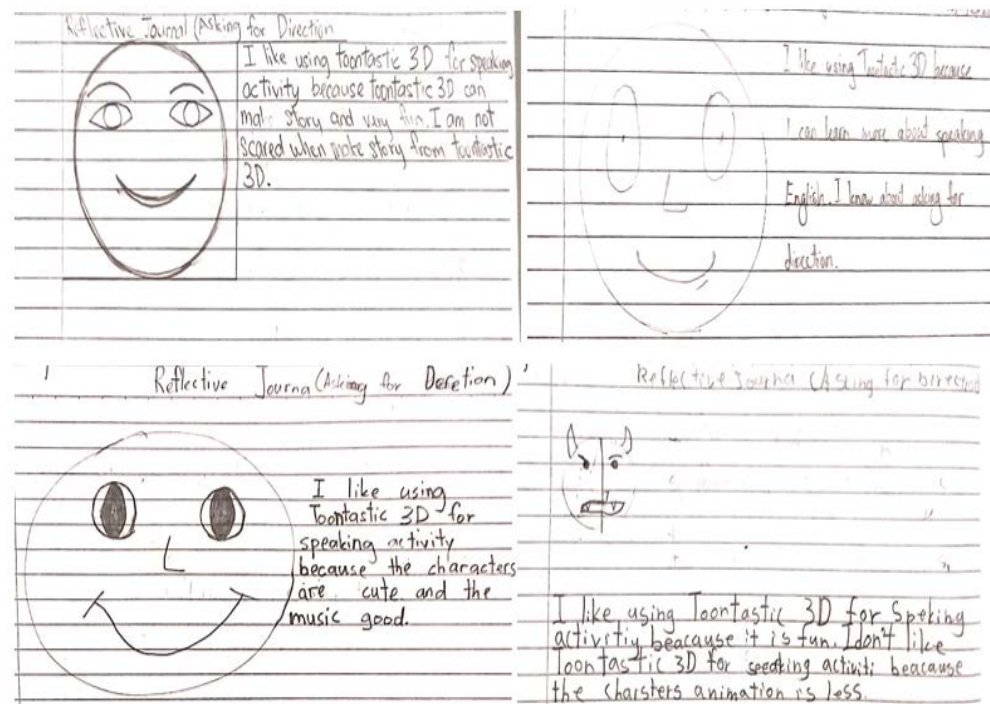 Reflective Journal (Asking for Direction
I like using toontastic 3D for speaking
activity because toontastic 3D can
make story and very fun. I am not
scared when make story from toontastic
3D.
I like using Toontastic 3D because
I can learn more about speaking
English. I know about asking for
direction.
Reflective Journa (Asking for Deretion)
I like using
Toontastic 3D for
speaking activity
because the characters
are cute and the
music good.
Reflective Journa (Asking for
I like using Toontastic 3D for Speking
activitiy beacause it is fun. I don't like
Toontastic 3D for activiti beacause
the animation is less.